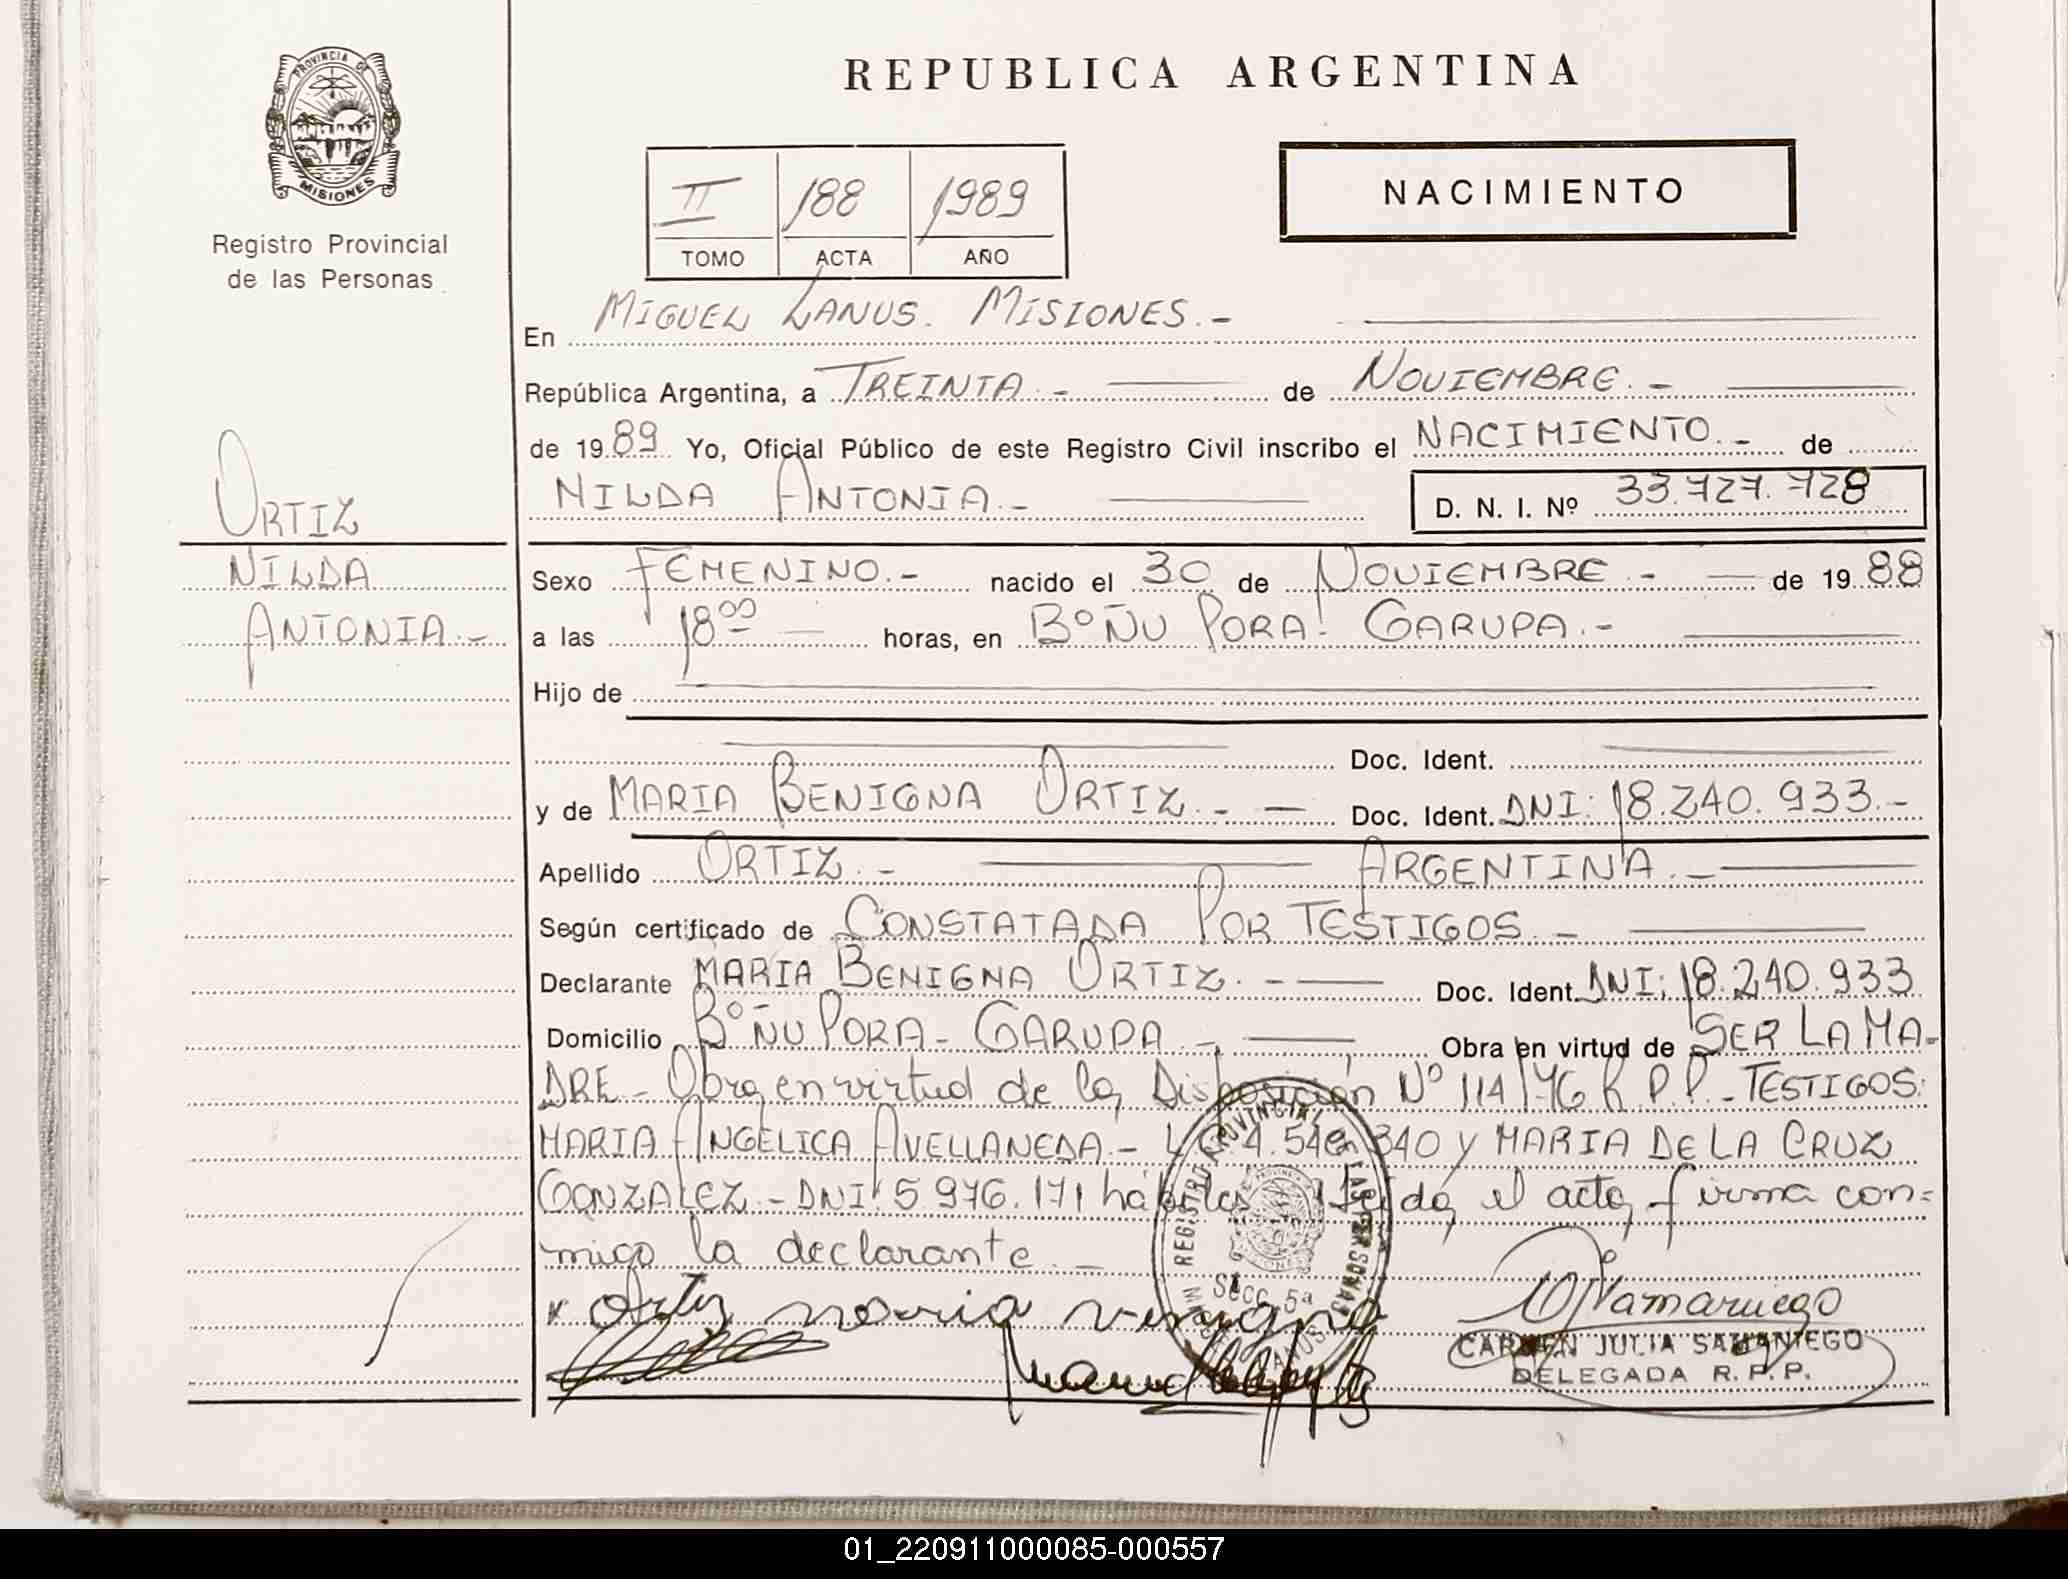 PROVINCIA DE
MISIONES
Registro Provincial
de las Personas
REPUBLICA ARGENTINA
II 188 1989
TOMO ACTA AÑO
NACIMIENTO
En MIGUEL LANUS. MISIONES.-
República Argentina, a TREINTA.- de NOVIEMBRE.-
de 1989 Yo, Oficial Público de este Registro Civil inscribo el NACIMIENTO.- de
NILDA ANTONIA.- D. N. I. Nº 33.727.728
ORTIZ
NILDA
ANTONIA.-
Sexo FEMENINO.- nacido el 30 de NOVIEMBRE.- de 1988
a las 18⁰⁰ horas, en Bº ÑU PORA! GARUPA.-
Hijo de
Doc. Ident.
y de MARIA BENIGNA ORTIZ.- Doc. Ident. DNI: 18.240.933.-
Apellido ORTIZ.- ARGENTINA.-
Según certificado de CONSTATADA POR TESTIGOS.-
Declarante MARIA BENIGNA ORTIZ.- Doc. Ident. DNI: 18.240.933
Domicilio Bº ÑU PORA- GARUPA.- Obra en virtud de SER LA MA-
DRE.- Obra en virtud de la Disposición Nº 114/76 R.P.P.- TESTIGOS:
MARIA ANGELICA AVELLANEDA.- 340 y MARIA DE LA CRUZ
GONZALEZ.- DNI: 5.976.171 hábiles Leída el acta, firma con=
migo la declarante.-
REGISTRO PROVINCIAL DE LAS PERSONAS
SECC. 5ª
MIGUEL LANUS
Ortiz maria venigna
CARMEN JULIA SAMANIEGO
DELEGADA R. P. P.
01_220911000085-000557